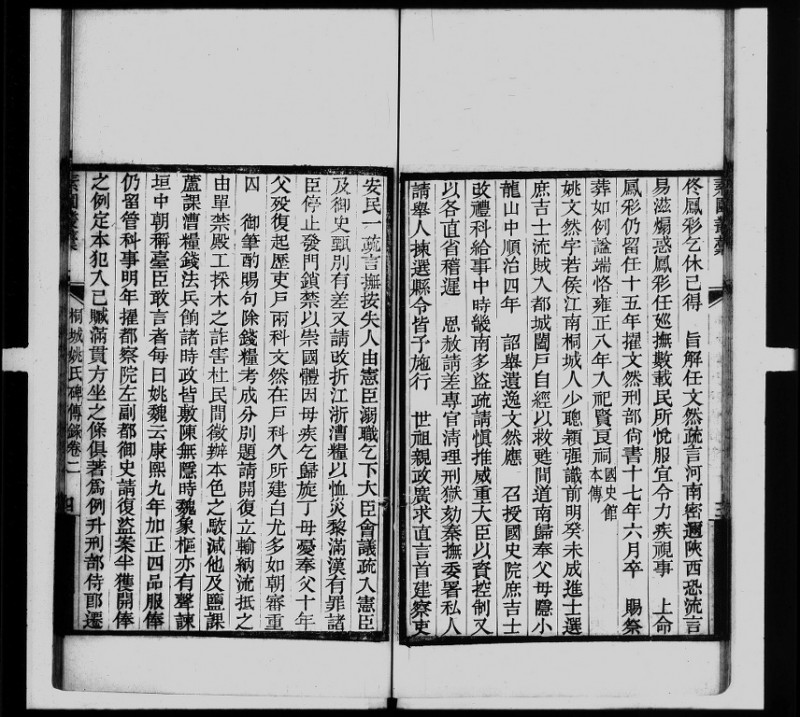 佟鳳彩乞休已得　旨解任文然疏言河南密邇陝西恐流言
易滋煽惑鳳彩任巡撫數載民所悅服宜令力疾視事　上命
鳳彩仍留任十五年擢文然刑部尙書十七年六月卒　賜祭
葬如例諡端恪雍正八年入祀賢良祠國史館本傳
姚文然字若侯江南桐城人少聰穎强識前明癸未成進士選
庶吉士流賊入都城闔戸自經以救甦間道南歸奉父母隱小
龍山中順治四年　詔舉遺逸文然應　召授國史院庶吉士
改禮科給事中時畿南多盜疏請愼推威重大臣以資控制又
以各直省稽遲　恩赦請差專官淸理刑獄劾秦撫委署私人
請舉人揀選縣令皆予施行　世祖親政廣求直言首建察吏
安民一疏言撫按失人由憲臣溺職乞下大臣會議疏入憲臣
及御史甄別有差又請改折江浙漕糧以恤災黎滿漢有罪諸
臣停止發門鎖禁以崇國體因母疾乞歸旋丁母憂奉父十年
父歿復起歷吏戸兩科文然在戸科久所建白尤多如朝審重
囚　御筆酌賜句除錢糧考成分別題請開復立輸納流抵之
由單禁殿工採木之詐害杜民間徵辦本色之駮減他及鹽課
蘆課漕糧錢法兵餉諸時政皆敷陳無隱時魏象樞亦有聲諫
垣中朝稱臺臣敢言者每曰姚魏云康熙九年加正四品服俸
仍留管科事明年擢都察院左副都御史請復盜案半獲開俸
之例定本犯入己贓滿貫方坐之條俱著爲例升刑部侍郎遷
桐城姚氏碑傳錄卷二
四